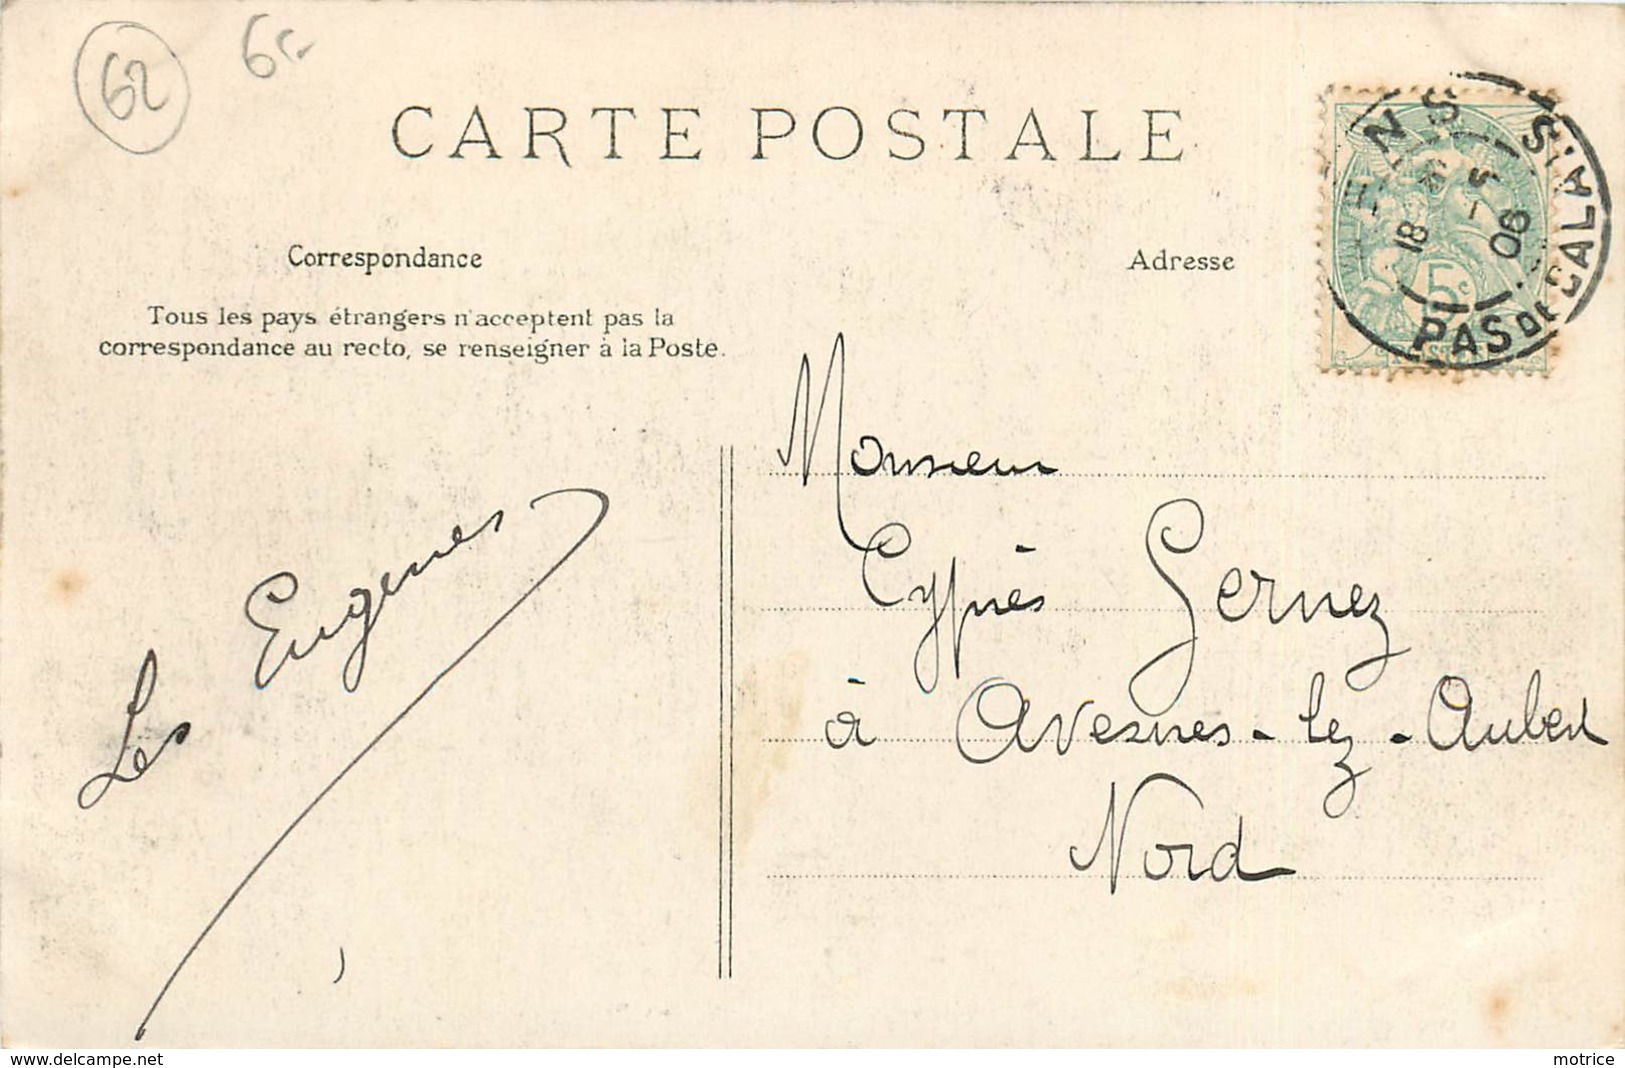 62
6
CARTE POSTALE
LENS
18
5
06
PAS DE CALAIS
5c
Correspondance
Adresse
Tous les pays étrangers n'acceptent pas la
correspondance au recto, se renseigner à la Poste.
Monsieur
Cyprès Gernez
à Avesnes-lez-Aubert
Nord
Les Eugenes
www.delcampe.net
motrice